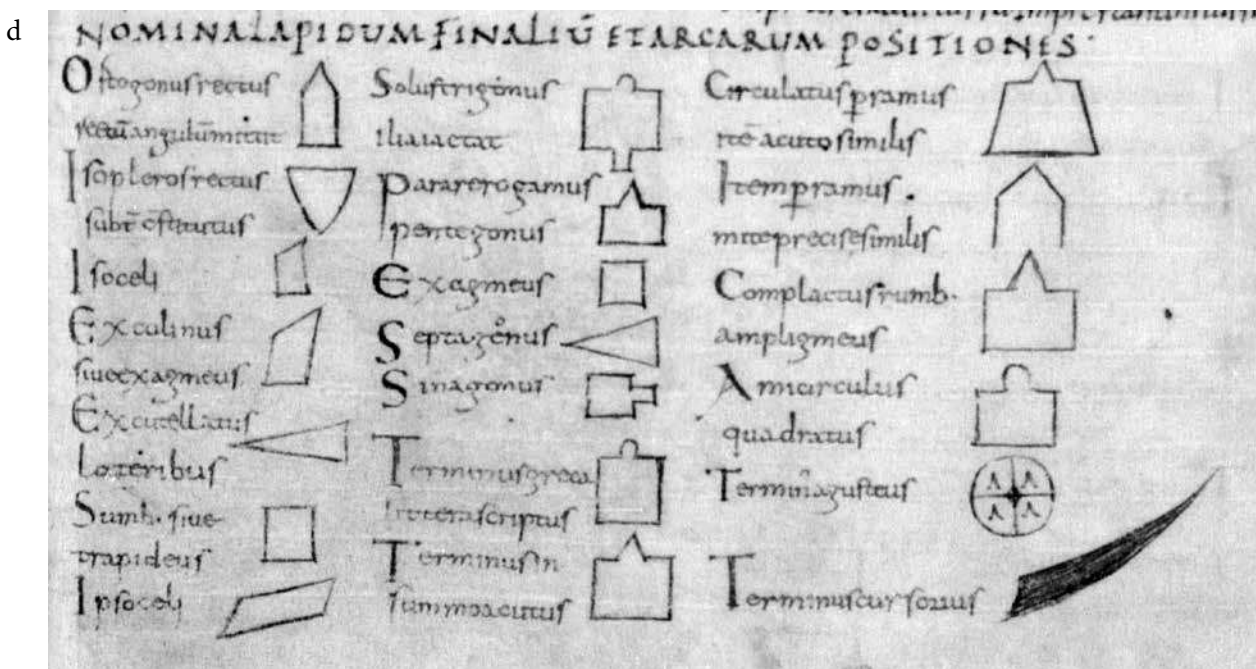 d
NOMINA LAPIDUM FINALIŪ ET ARCARUM POSITIONES
Octogonus rectus
rectū angulūmitat
Isopleros rectus
Isoceli
Exculinus
sive exagmeus
Excutellatus
lateribus
Sumb. sive
trapideus
Ipsoceli
Solustrigonus
iliaiactat
Pararerogamus
pentegonus
Exagmeus
Septagonus
Sinagonus
Terminus greca
littera scriptus
Terminus in
summo acutus
Circulatus pramus
itē acuto similis
Item pramus
mite precise similis
Complactus rumb.
ampligmeus
Amicirculus
quadratus
Termin agusteus
Terminus cursorius
A A
A A